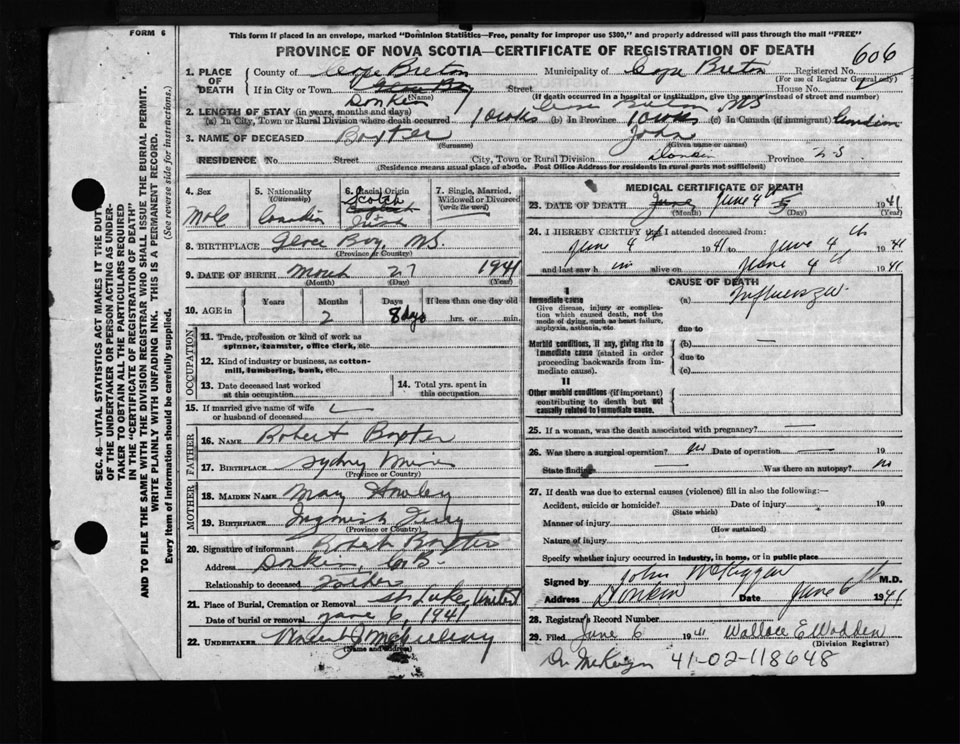 FORM 6
This form if placed in an envelope, marked "Dominion Statistics—Free, penalty for improper use $300," and properly addressed will pass through the mail "FREE"
PROVINCE OF NOVA SCOTIA—CERTIFICATE OF REGISTRATION OF DEATH
606
1. PLACE OF DEATH
County of Cape Breton Municipality of Cape Breton Registered No.
(For use of Registrar General only)
If in City or Town Glace Bay Street House No.
(Name) (If death occurred in a hospital or institution, give the name instead of street and number)
Donkin Cape Breton NS
2. LENGTH OF STAY (in years, months and days)
(a) In City, Town or Rural Division where death occurred 10 wks (b) In Province 10 wks (c) In Canada (if immigrant)
3. NAME OF DECEASED Baxter John
(Surname) (Given name or names)
RESIDENCE No. Street City, Town or Rural Division Donkin Province N.S.
(Residence means usual place of abode. Post Office Address for residents in rural parts not sufficient)
4. Sex
Male
5. Nationality
(Citizenship)
Canadian
6. Racial Origin
Scotch
+
Irish
7. Single, Married, Widowed or Divorced
(write the word)
8. BIRTHPLACE Glace Bay, N.S.
(Province or Country)
9. DATE OF BIRTH March 27 1941
(Month) (Day) (Year)
10. AGE in
Years Months Days If less than one day old
2 8 days hrs. or min.
OCCUPATION
11. Trade, profession or kind of work as spinner, teamster, office clerk, etc.
12. Kind of industry or business, as cotton-mill, lumbering, bank, etc.
13. Date deceased last worked at this occupation
14. Total yrs. spent in this occupation
15. If married give name of wife or husband of deceased
FATHER
16. NAME Robert Baxter
17. BIRTHPLACE Sydney Mines
(Province or Country)
MOTHER
18. MAIDEN NAME Mary
19. BIRTHPLACE Ingonish Ferry
(Province or Country)
20. Signature of informant Robert Baxter
Address Donkin, C.B.
Relationship to deceased Father
21. Place of Burial, Cremation or Removal St. Luke United
Date of burial or removal June 6, 1941
22. UNDERTAKER
(Name and address)
MEDICAL CERTIFICATE OF DEATH
23. DATE OF DEATH June June 4th 5 1941
(Month) (Day) (Year)
24. I HEREBY CERTIFY that I attended deceased from:
June 4th 1941 to June 4th 1941
and last saw h im alive on June 4th 1941
CAUSE OF DEATH
I
Immediate cause
Give disease, injury or complication which caused death, not the mode of dying, such as heart failure, asphyxia, asthenia, etc.
(a) Influenza
due to
Morbid conditions, if any, giving rise to immediate cause (stated in order proceeding backwards from immediate cause).
(b) —
due to
(c)
II
Other morbid conditions (if important) contributing to death but not causally related to immediate cause.
25. If a woman, was the death associated with pregnancy? —
26. Was there a surgical operation? no Date of operation —
State findings — Was there an autopsy? no
27. If death was due to external causes (violence) fill in also the following:—
Accident, suicide or homicide? Date of injury 19
(State which)
Manner of injury
(How sustained)
Nature of injury
Specify whether injury occurred in industry, in home, or in public place
Signed by John McKiggan M.D.
Address Donkin Date June 6th 1941
28. Registrar's Record Number
29. Filed June 6 1941 Wallace E Wadden
(Division Registrar)
Dr. McKiggan 41-02-118648
SEC. 46—VITAL STATISTICS ACT MAKES IT THE DUTY OF THE UNDERTAKER OR PERSON ACTING AS UNDERTAKER TO OBTAIN ALL THE PARTICULARS REQUIRED IN THE "CERTIFICATE OF REGISTRATION OF DEATH" AND TO FILE THE SAME WITH THE DIVISION REGISTRAR WHO SHALL ISSUE THE BURIAL PERMIT.
WRITE PLAINLY WITH UNFADING INK. THIS IS A PERMANENT RECORD.
Every item of information should be carefully supplied. (See reverse side for instructions.)